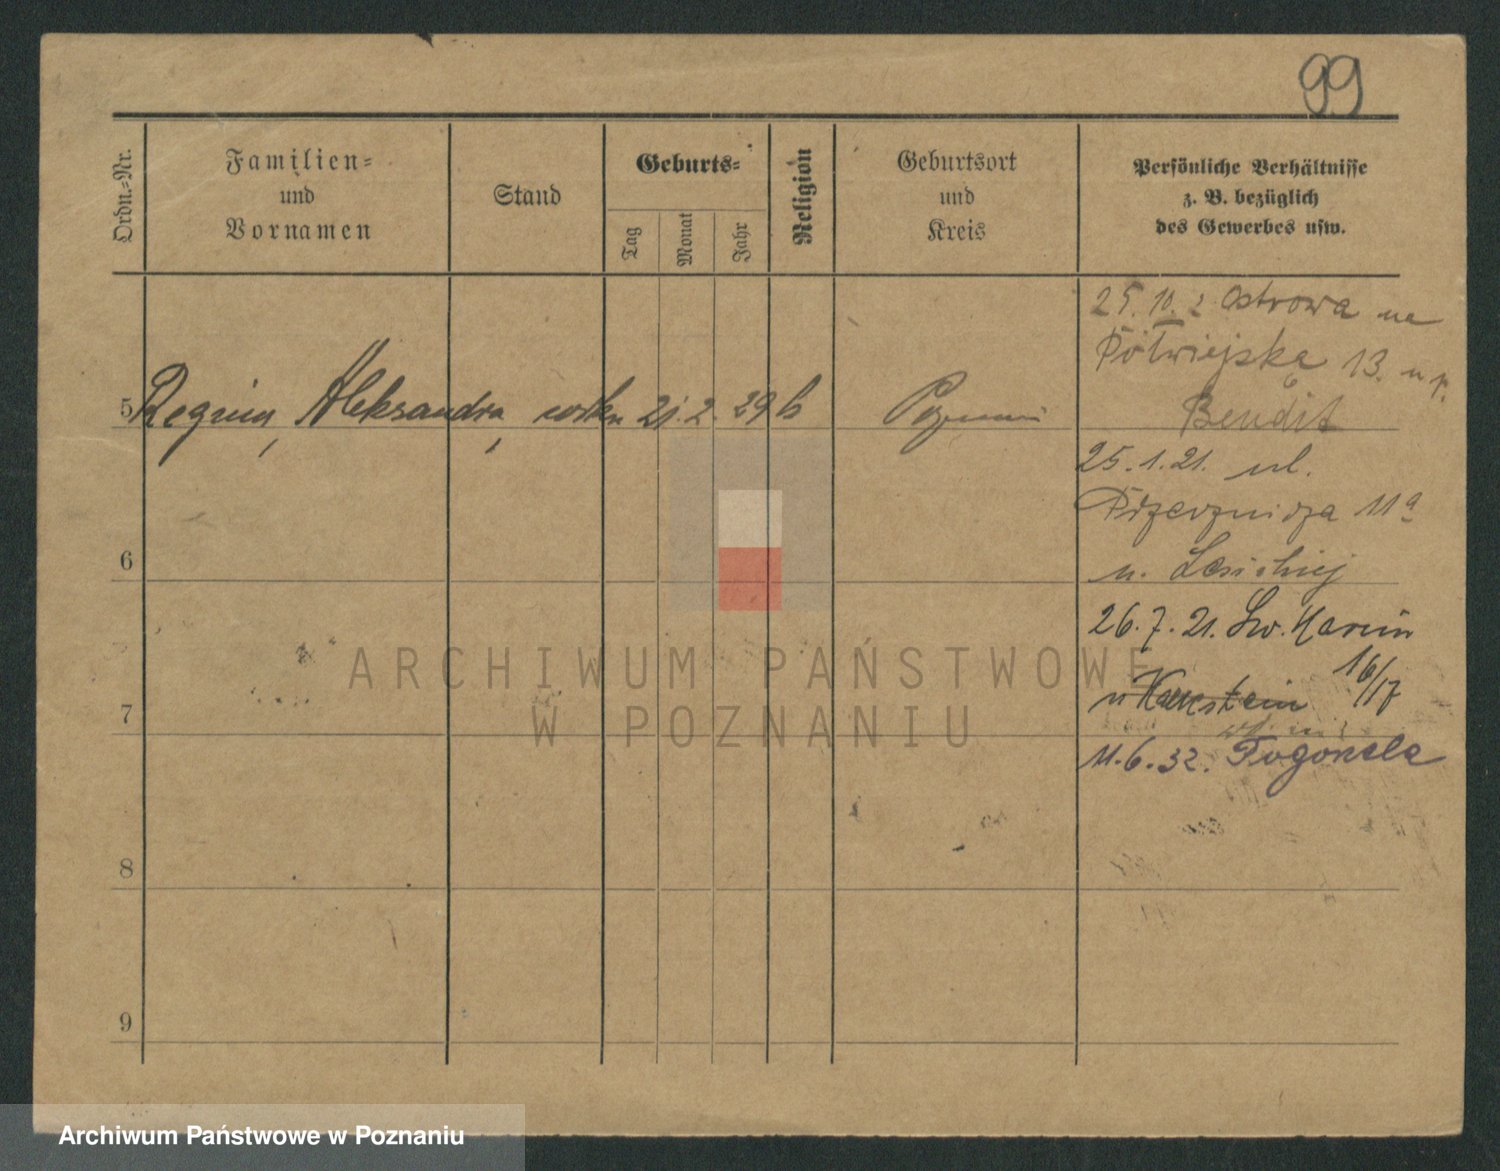 99
Ordn.-Nr.
Familien-
und
Vornamen
Stand
Geburts-
Tag
Monat
Jahr
Religion
Geburtsort
und
Kreis
Persönliche Verhältnisse
z. B. bezüglich
des Gewerbes usw.
25. 10. z Ostrowa na
Półwiejska 13. u p.
Bendit
5 Regina, Aleksandra, 21. 2. 29
25. 1. 21. ul.
11a
6
u.
26. 7. 21. Św. Marcin
16/17
7
u
11. 6. 32.
8
9
ARCHIWUM PAŃSTWOWE
W POZNANIU
Archiwum Państwowe w Poznaniu